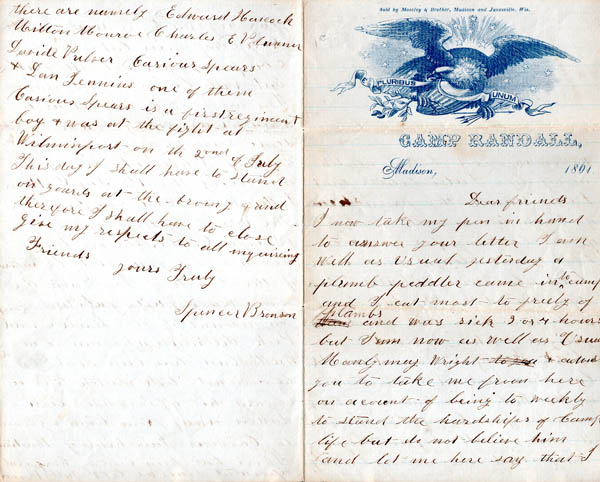 there are namely Edward Hancock
Milton Monroe Charles E Plummer
Davide Pulver Carious Spears
& Dan Jennins one of them
Carious Spears is a first regiment
boy & was at the fight at
Wilminsport on th 2ond of July
This day I shall have to stand
on guards at the broary & and
therfore I shall have to close
give my respects to all inquiring
Friends
yours Truly
Spencer Bronson
Sold by Moseley & Brother, Madison and Janesville, Wis.
E PLURIBUS
UNUM
CAMP RANDALL,
Madison, 1861
Dear friends
I now take my pen in hand
to answer your letter I am
well as Usual yesterday a
plumb peddler came in to camp
and I eat most to freely of
plambs
and was sick 3 or 4 hours
but I am now as well as Usual
Manly may Wright to you & advise
you to take me from here
on account of being to weekly
to stand the hardships of Camp
life but do not believe him
and let me here say that I